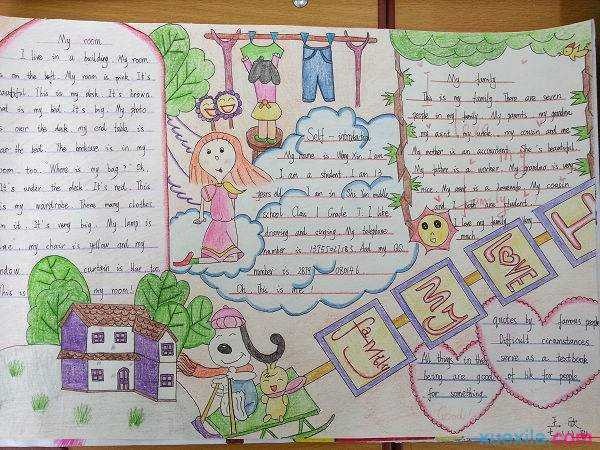 My room
I live in a building. My room
is on the left. My room is pink. It's
beautiful. This is my desk. It's brown.
that is my bed. it's big. My photo
is over the desk. my end table is
near the bed. The bookcase is in my
room too. "Where is my bag?" Sh,
It's under the desk. It's red. This
is my wardrobe. There many clothes
in it. It's very big. My lamp is
my chair is yellow and my
window curtain is blue, too.
This is my room!
Self-introduction
My name is Wang Xin. I am
I am a student. I am 12
years old. I am in
school Class 1 Grade 7. I like
drawing and singing. My telephone
number is And my QQ
number is
Oh. This is me!
My family
This is my family. There are seven
people in my family. My parents, my grandma
my aunt, my uncle, my cousin and me.
My mother is an accountant. She is beautiful.
My father is a worker. My grandma is very
nice. My aunt is a My cousin
and I both student.
I love my family very
much.
I
LOVE
My
family
quotes by famous people
Difficult circumstances
serve as a textbook
of life for people
All things in their
being are good
for something.
王欣
xuexila.com